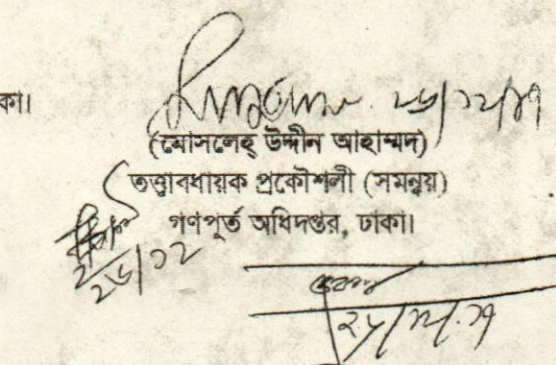 কা।
২৬/১২/১৭
(মোসলেহ্ উদ্দীন আহাম্মদ)
তত্ত্বাবধায়ক প্রকৌশলী (সমন্বয়)
গণপূর্ত অধিদপ্তর, ঢাকা।
২৬/১২